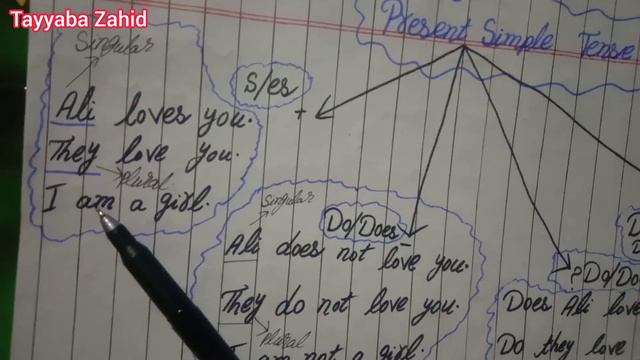 Tayyaba Zahid
Present Simple Tense
Singular
S/es
+
Ali loves you.
They love you.
Plural
I am a girl.
Singular
Do/Does
-
Ali does not love you.
They do not love you.
Plural
I am not a girl.
? Do/Do
Does Ali love
Do they love